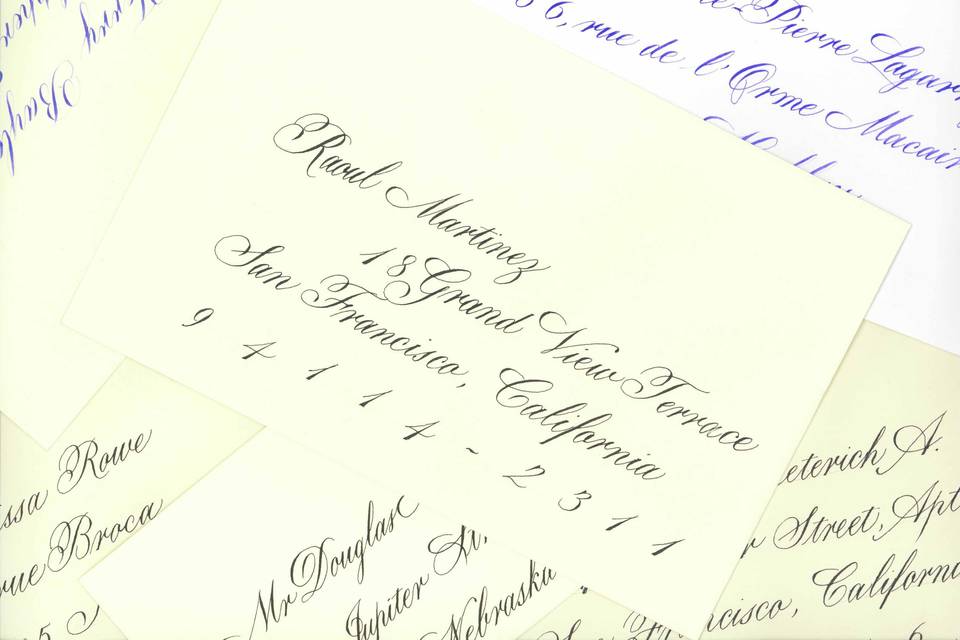 Raoul Martinez
18 Grand View Terrace
San Francisco, California
9 4 1 1 4 - 2 3 1 1
Pierre Lagar
6, rue de l'Orme Macair
Rowe
rue Broca
5
Mr Douglas
Jupiter St.
Nebraska
eterich A.
Street, Apt
cisco, California
6